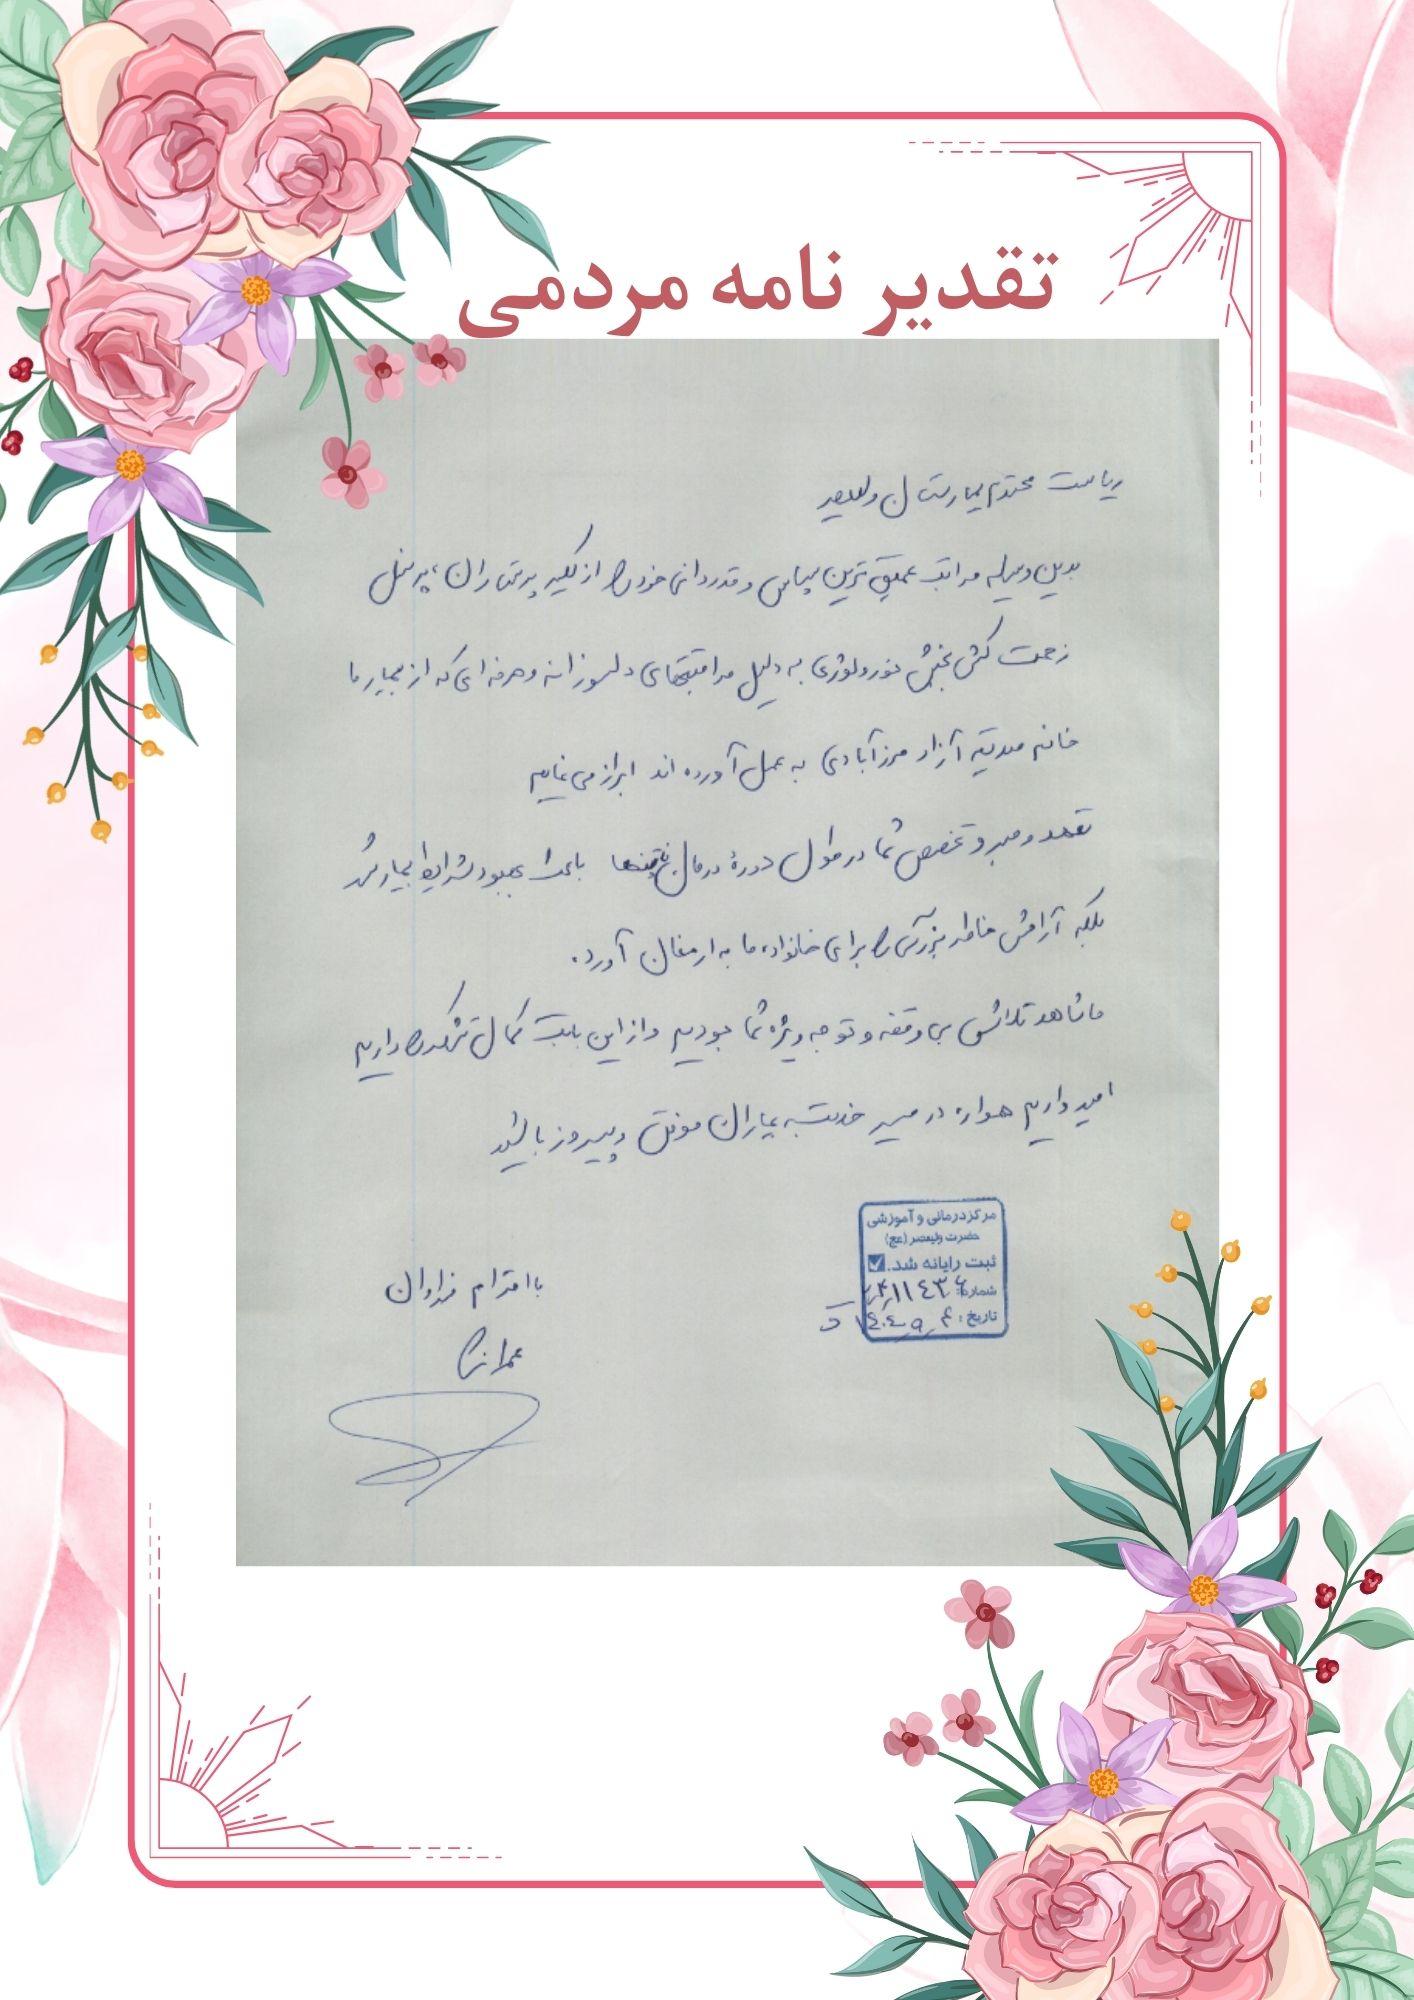 تقدیر نامه مردمی
ریاست محترم بیمارستان ولیعصر
بدین وسیله مراتب عمیق ترین سپاس و قدردانی خود را از کلیه پرستاران، پرسنل
زحمت کش بخش نورولوژی به دلیل مراقبتهای دلسوزانه و حرفه ای که از بیمار ما
خانم صدیقه آزاد مرزآبادی به عمل آورده اند ابراز می نمایم
تعهد و صبر و تخصص شما در طول دوره درمان نه تنها باعث بهبود شرایط بیمار شد
بلکه آرامش خاطر بزرگی را برای خانواده ما به ارمغان آورد.
ما شاهد تلاش بی وقفه و توجه ویژه شما بودیم و از این بابت کمال تشکر را داریم
امیدواریم همواره در مسیر خدمت به بیماران موفق و پیروز باشید
مرکز درمانی و آموزشی
حضرت ولیعصر (عج)
ثبت رایانه شد.
شماره:
تاریخ: ۱۴۰۴/۹/۴
با احترام فراوان